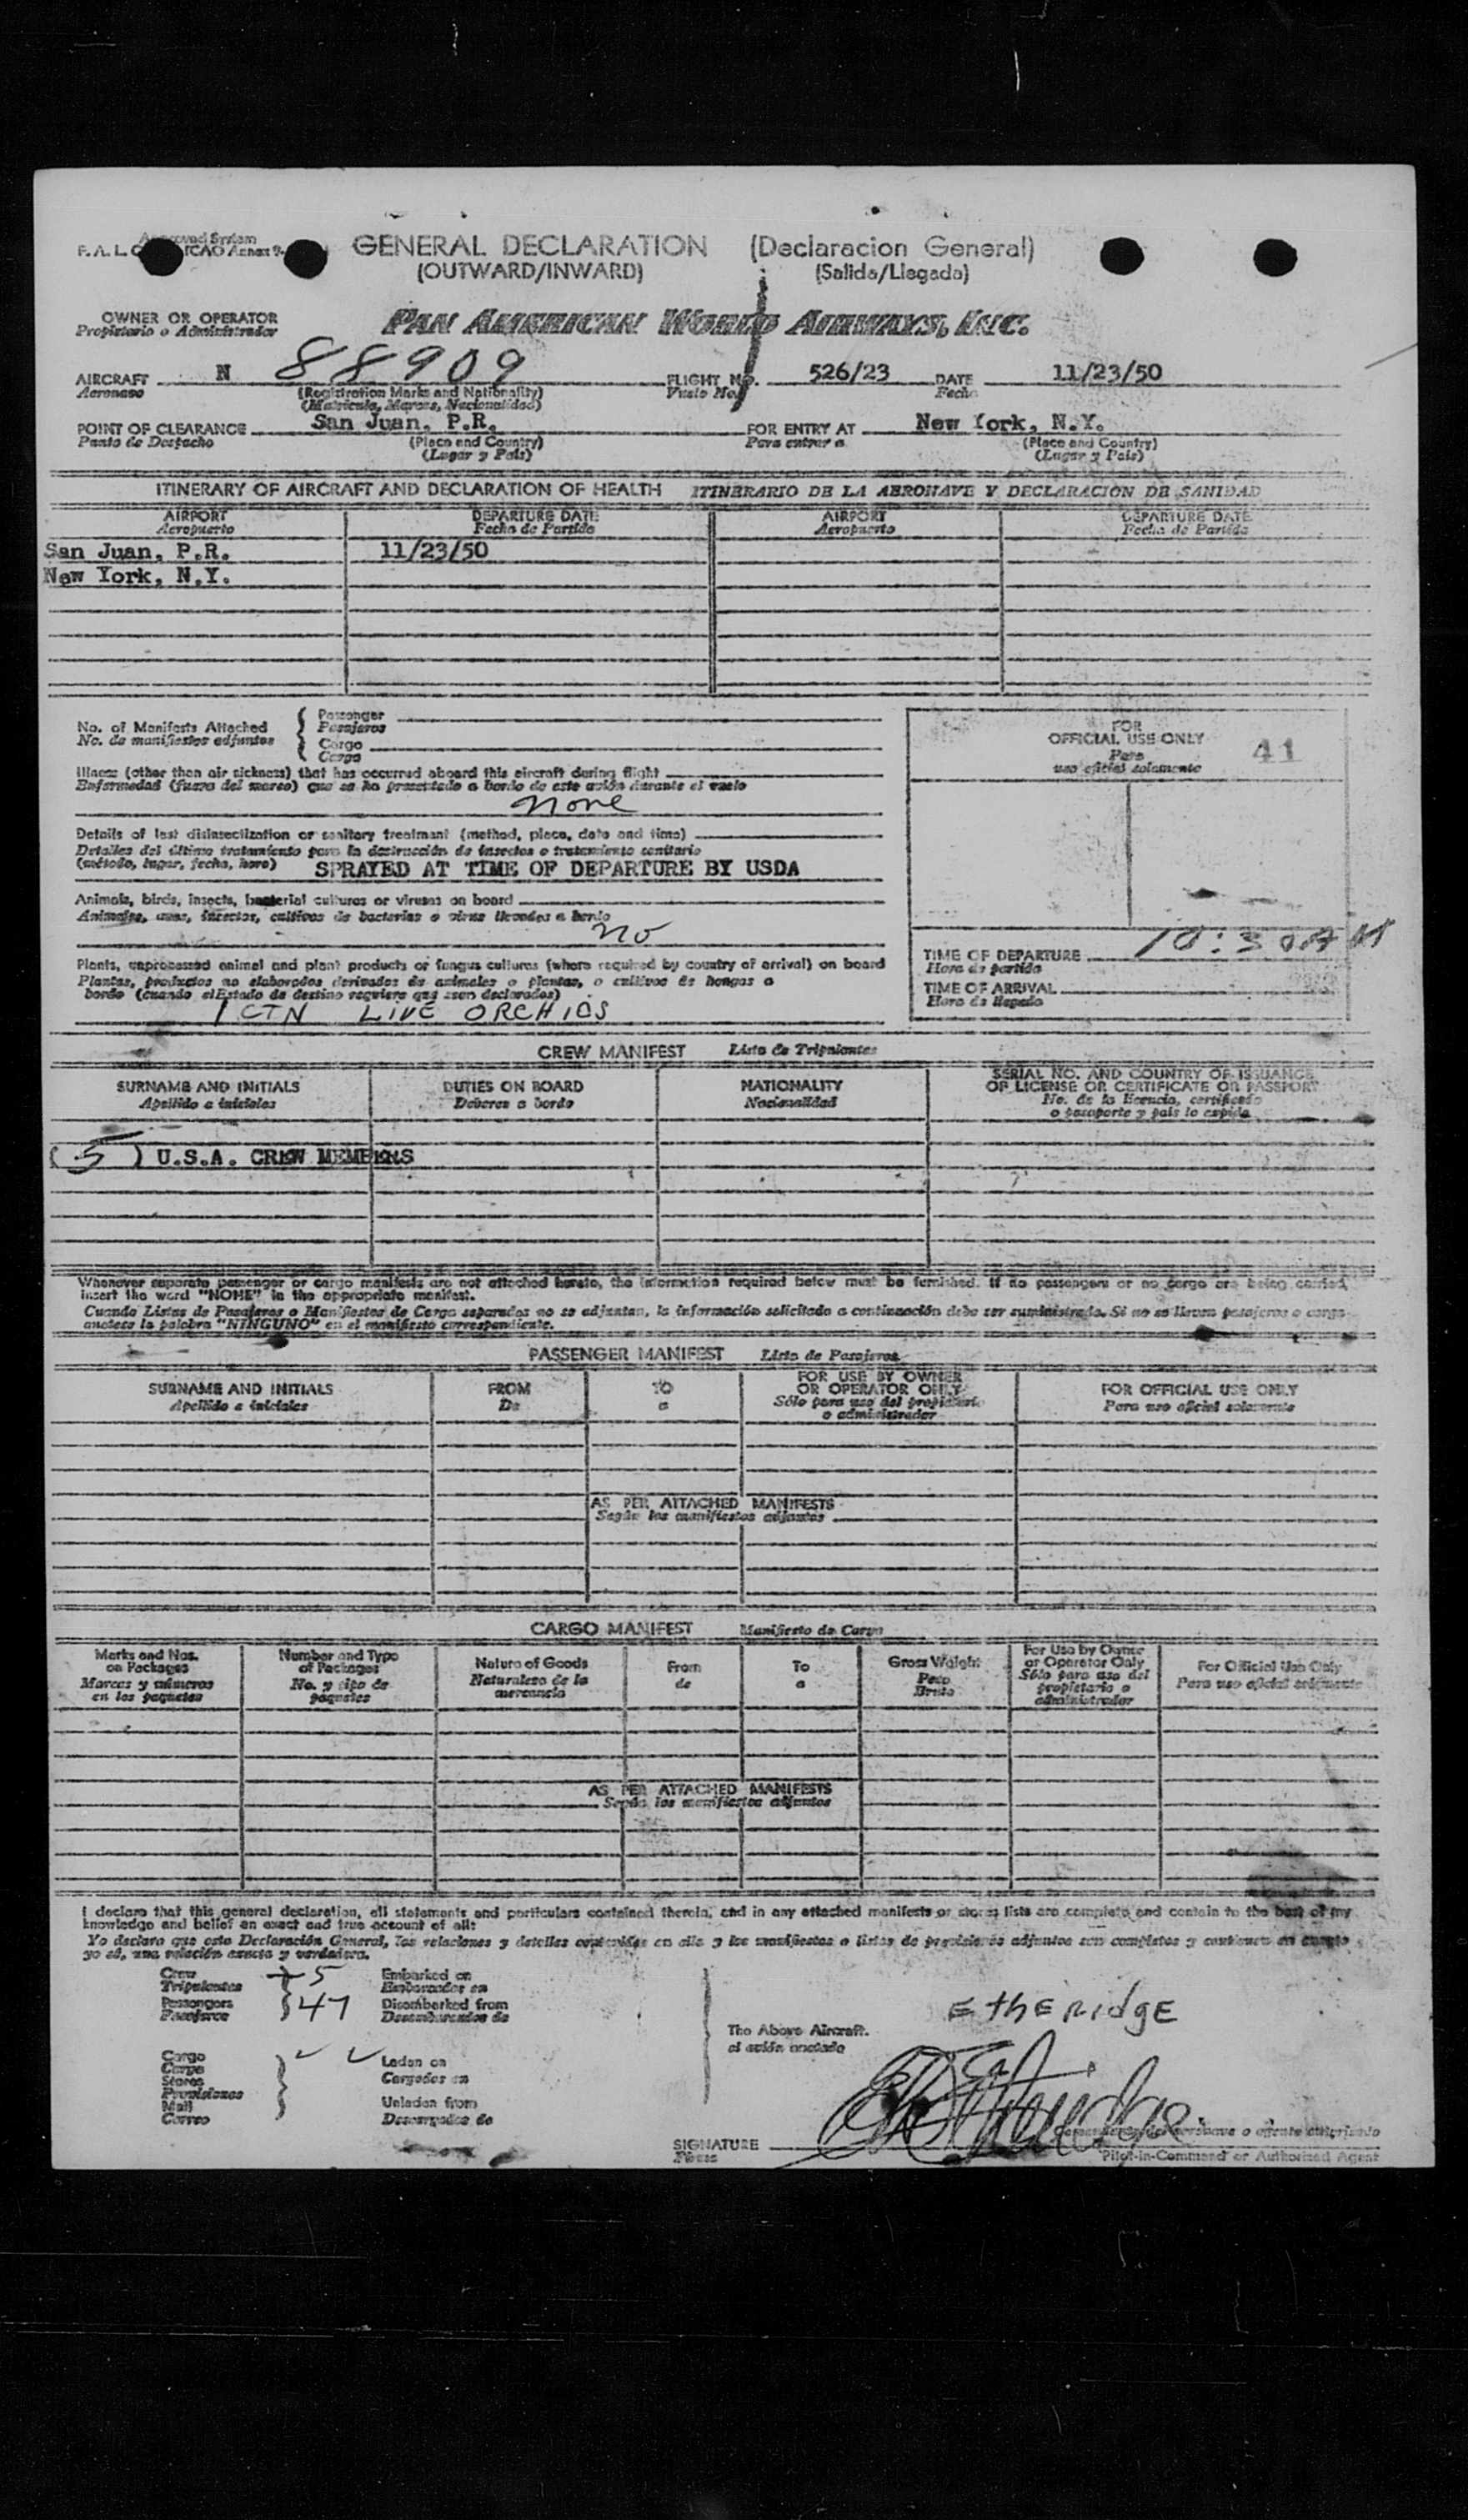 Approved System
F.A.L. ICAO Annex 9
GENERAL DECLARATION (Declaracion General)
(OUTWARD/INWARD) (Salida/Llegada)
OWNER OR OPERATOR
Propietario o Administrador
PAN AMERICAN WORLD AIRWAYS, INC.
AIRCRAFT N 88909 FLIGHT NO. 526/23 DATE 11/23/50
Aeronave (Registration Marks and Nationality) Vuelo No. Fecha
(Matricula, Marcas, Nacionalidad)
POINT OF CLEARANCE San Juan, P.R. FOR ENTRY AT New York, N.Y.
Punto de Despacho (Place and Country) Para entrar a (Place and Country)
(Lugar y Pais) (Lugar y Pais)
ITINERARY OF AIRCRAFT AND DECLARATION OF HEALTH ITINERARIO DE LA AERONAVE Y DECLARACION DE SANIDAD
AIRPORT DEPARTURE DATE AIRPORT DEPARTURE DATE
Aeropuerto Fecha de Partida Aeropuerto Fecha de Partida
San Juan, P.R. 11/23/50
New York, N.Y.
No. of Manifests Attached
No. de manifiestos adjuntos
Passenger
Pasajeros
Cargo
Carga
FOR
OFFICIAL USE ONLY 41
Para
uso oficial solamente
Illness (other than air sickness) that has occurred aboard this aircraft during flight
Enfermedad (fuera del mareo) que se ha presentado a bordo de este avión durante el vuelo
none
Details of last disinsectization or sanitary treatment (method, place, date and time)
Detalles del último tratamiento para la destrucción de insectos o tratamiento sanitario
(método, lugar, fecha, hora) SPRAYED AT TIME OF DEPARTURE BY USDA
Animals, birds, insects, bacterial cultures or viruses on board
Animales, aves, insectos, cultivos de bacterias o virus llevados a bordo
no
TIME OF DEPARTURE 10:30AM
Hora de partida
Plants, unprocessed animal and plant products or fungus cultures (where required by country of arrival) on board
Plantas, productos no elaborados derivados de animales o plantas, o cultivos de hongos a
bordo (cuando el Estado de destino requiera que sean declarados)
1 CTN LIVE ORCHIDS
TIME OF ARRIVAL
Hora de llegada
CREW MANIFEST Lista de Tripulantes
SURNAME AND INITIALS DUTIES ON BOARD NATIONALITY SERIAL NO. AND COUNTRY OF ISSUANCE
OF LICENSE OR CERTIFICATE OR PASSPORT
Apellido e iniciales Deberes a bordo Nacionalidad No. de la licencia, certificado
o pasaporte y pais lo expide
(5) U.S.A. CREW MEMBERS
Whenever separate passenger or cargo manifests are not attached hereto, the information required below must be furnished. If no passengers or no cargo are being carried,
insert the word "NONE" in the appropriate manifest.
Cuando Listas de Pasajeros o Manifiestos de Carga separados no se adjuntan, la información solicitada a continuación debe ser suministrada. Si no se llevan pasajeros o carga
anotese la palabra "NINGUNO" en el manifiesto correspondiente.
PASSENGER MANIFEST Lista de Pasajeros
SURNAME AND INITIALS FROM TO FOR USE BY OWNER
OR OPERATOR ONLY FOR OFFICIAL USE ONLY
Apellido e iniciales De a Sólo para uso del propietario
o administrador Para uso oficial solamente
AS PER ATTACHED MANIFESTS
Según los manifiestos adjuntos
CARGO MANIFEST Manifiesto de Carga
Marks and Nos.
on Packages
Marcas y números
en los paquetes
Number and Type
of Packages
No. y tipo de
paquetes
Nature of Goods
Naturaleza de la
mercancia
From
de
To
a
Gross Weight
Peso
Bruto
For Use by Owner
or Operator Only
Sólo para uso del
propietario o
administrador
For Official Use Only
Para uso oficial
AS PER ATTACHED MANIFESTS
Según los manifiestos adjuntos
I declare that this general declaration, all statements and particulars contained therein, and in any attached manifests or stores lists are complete and contain to the best of my
knowledge and belief an exact and true account of all:
Yo declaro que esta Declaración General, las relaciones y detalles contenidos en ella y los manifiestos o listas de provisiones adjuntos son completos y contienen en cuanto
yo sé, una relación exacta y verdadera.
Crew 5 Embarked on
Tripulantes Embarcados en
Passengers 47 Disembarked from
Pasajeros Desembarcados de
The Above Aircraft.
el avión anotado
Etheridge
Cargo Laden on
Carga Cargados en
Stores
Provisiones
Mail Unladen from
Correo Descargados de
SIGNATURE
Firma
Comandante de aeronave o agente autorizado
Pilot-in-Command or Authorized Agent